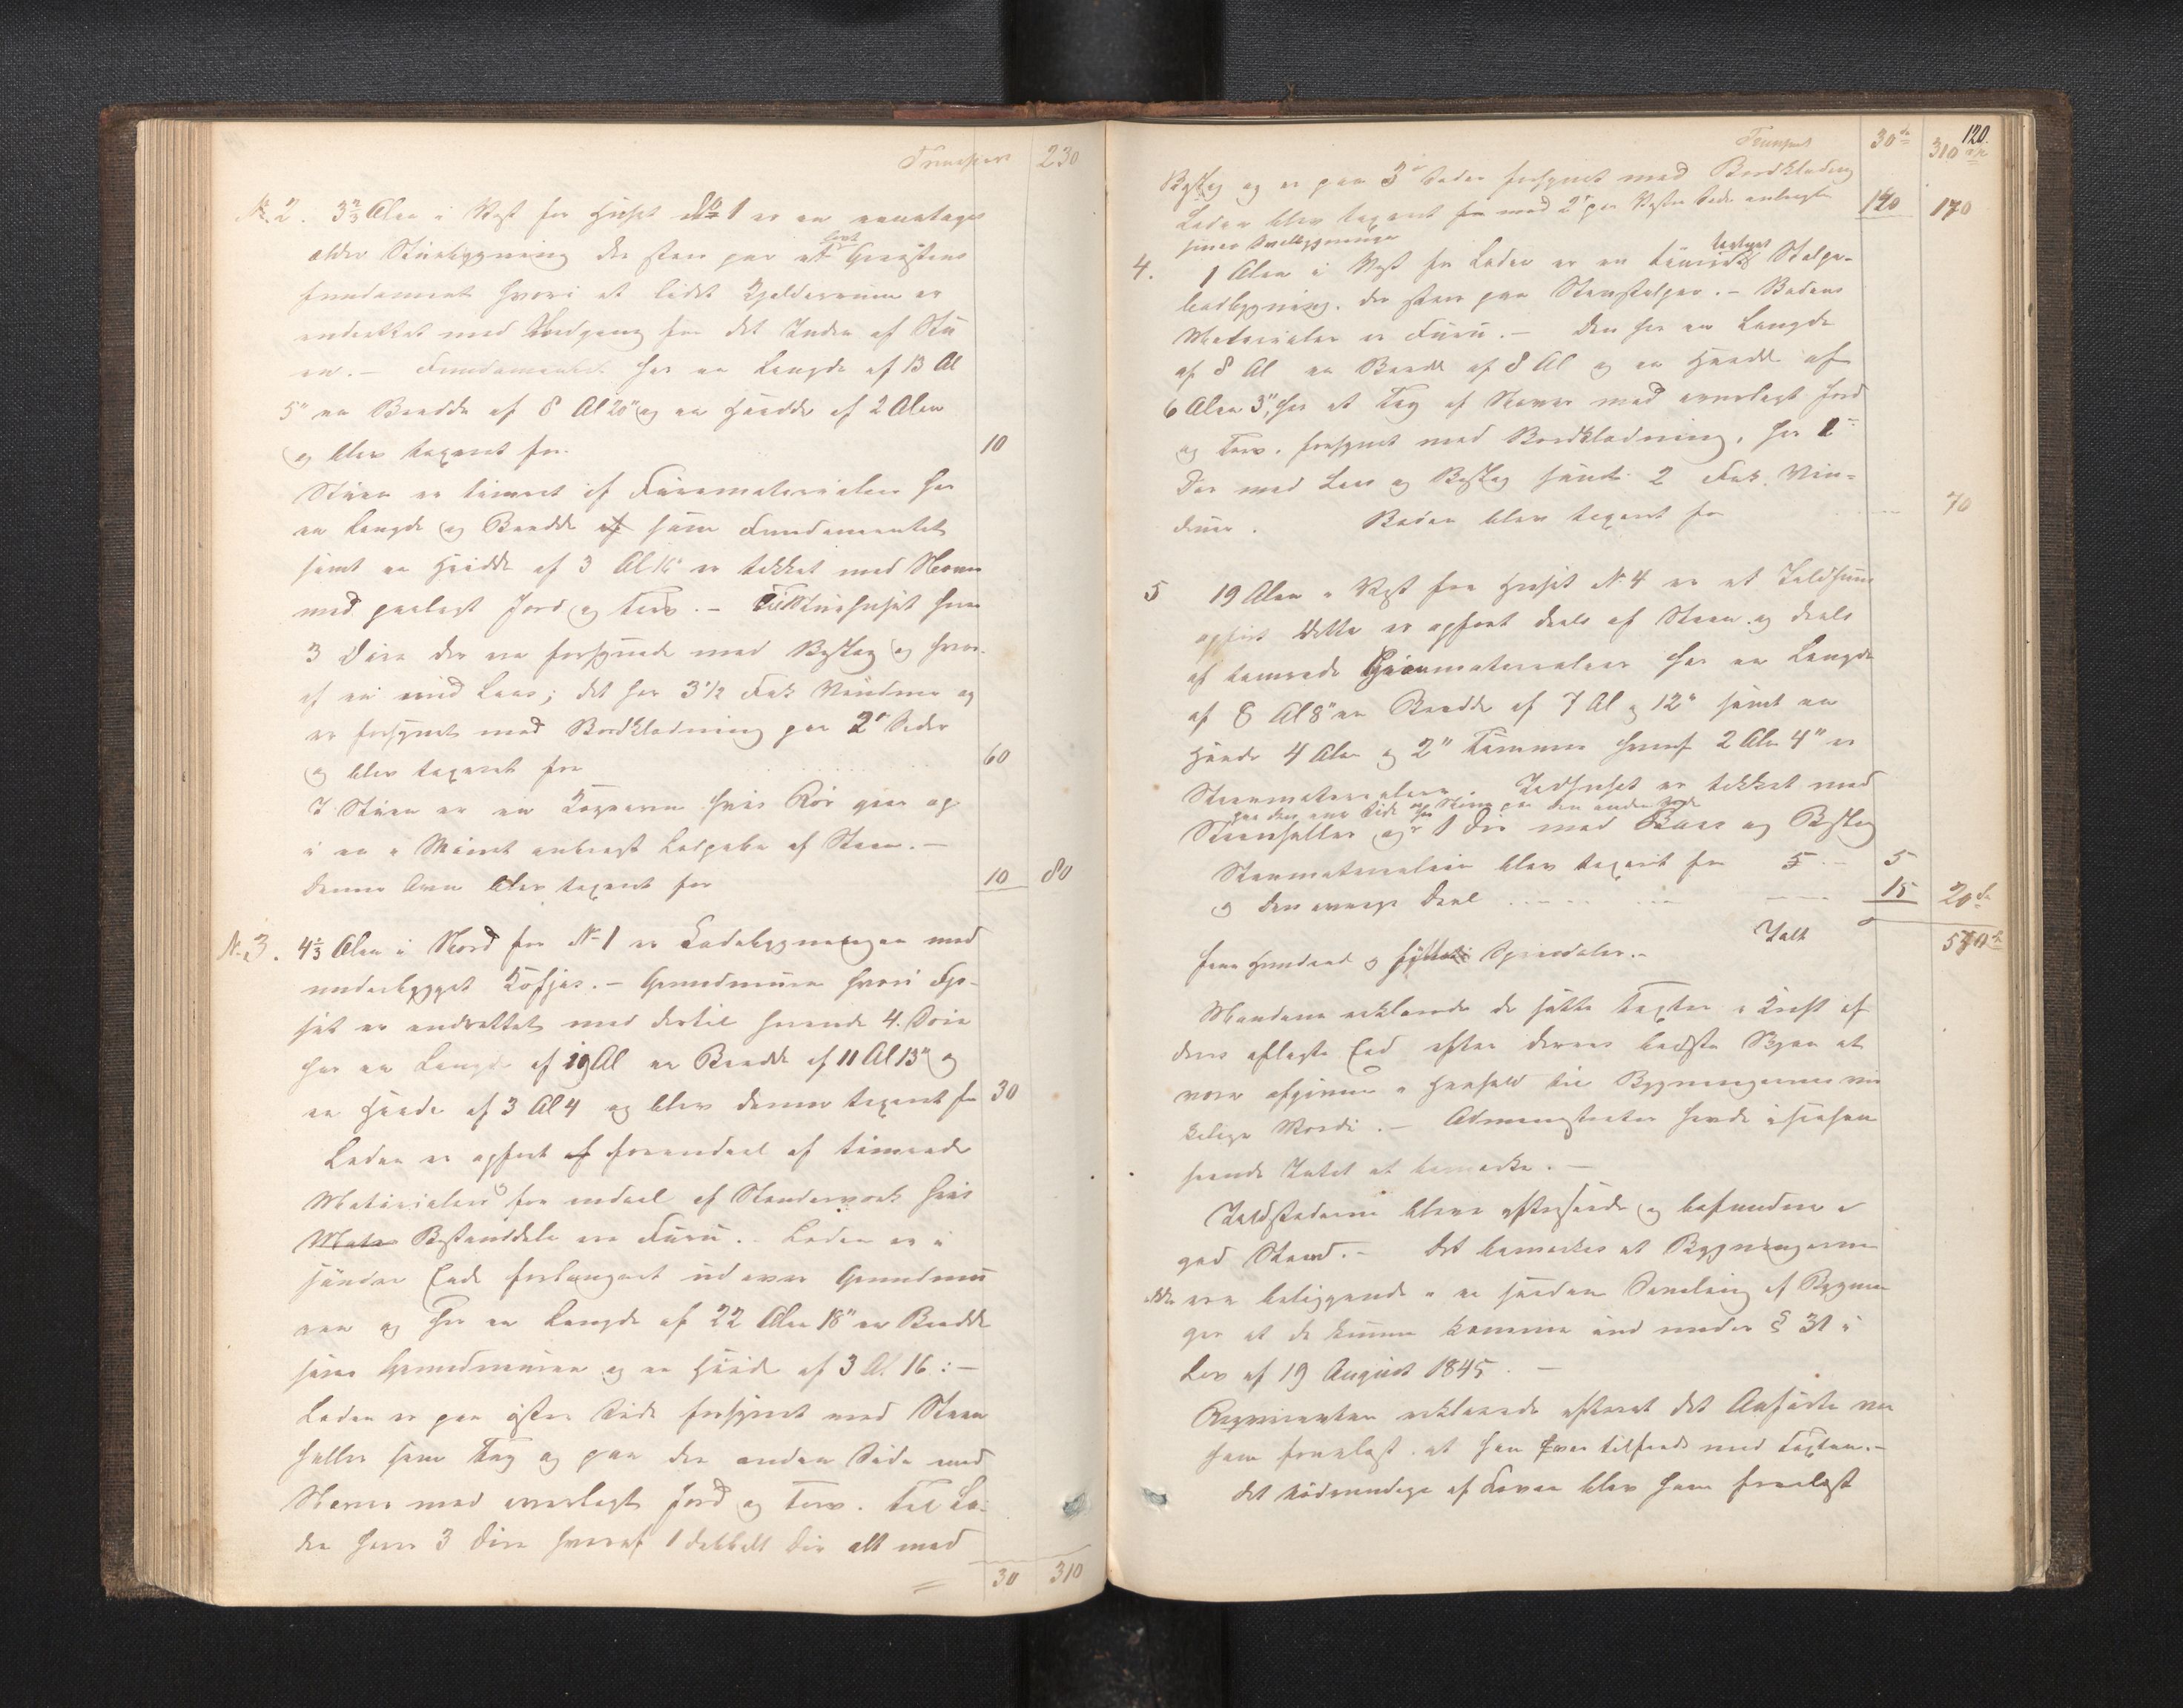 Transport 230
No 2. 3⅔ Alen i Vest for Huset No 1 er en eenetages
ældre Stuebygning der staar paa et lavt Graastens
fundament hvori et lidet Kjelderrum er
indrettet med Nedgang fra det Indre af Stu
en. – Fundamentet har en Længde af 13 Al
5" en Bredde af 8 Al 20" og en Høide af 2 Alen
og blev taxeret for 10
Stuen er tømret af Furumaterialier har
en Længde og Bredde af som Fundamentet
samt en Høide af 3 Al 16" er tækket med Næver
med paalagt Jord og Torv. – Til Stuehuset høre
3 Døre der ere forsynede med Beslag og hvor-
af en med Laas; det har 3½ Fak Vinduer og
er forsynet med Bordklædning paa 2de Sider
og blev taxeret for 60
I Stuen er en Kogeovn hvis Rør gaar op
i en i Muret anbragt Ladepibe af Steen. –
Denne Ovn blev taxeret for 10 80
No 3. 4⅓ Alen i Nord for No 1 er Ladebygningen med
underbygget Kofjøs. – Grundmuren hvori Fjø-
set er indrettet med dertil hørende 4. Døre
har en Længde af 19 Al en Bredde af 11 Al 13" og
en Høide af 3 Al 4 og blev denne taxeret for 30
Laden er opført af for en deel af tømrede
Materialier og for en deel af Stenderværk hvis
Mate Bestanddele ere Furu. – Laden er i
søndre Ende forlænget ud over Grundmu
ren og har en Længde af 22 Alen 18" en Bredde
som Grundmuren og en Høide af 3 Al 16 : –
Laden er paa østre Side forsynet med Steen
heller som Tag og paa den anden Side med
Næver med overlagt Jord og Torv. Til La-
den høre 3 Døre hvoraf 1 dobbelt Dør alt med
30 310
120.
Transport 30 310
Beslag og er paa 3de Sider forsynet med Bordklædning
Laden blev taxeret for med 2de paa Vestre Side anbragte
smaa Tverbygninger 140 170
4. 1 Alen i Vest for Laden er en tømret Stolpe-
bodbygning, der staar paa Stenstolper. – Bodens
Materialier er Furu. – Den har en Længde
af 8 Al en Bredde af 8 Al og en Høide af
6 Alen 3", har et Tag af Næver med overlagt Jord
og Torv, forsynet med Bordklædning, har 2
Dør med Laas og Beslag samt 2 Fak. Vin-
duer. Boden blev taxeret for 70
5 19 Alen i Vest fra Huset No 4 er et Ildhuus
opført. Dette er opført deels af Steen og deels
af tømrede Furumaterialier har en Længde
af 8 Al 8" en Bredde af 7 Al og 12" samt en
Høide 4 Alen og 2" Tømmer hvoraf 2 Alen 4" er
Steenmaterialier. Ildhuset er tækket med
paa den ene Side og Næver paa den anden Side
Steenheller og har 1 Dør med Laas og Beslag
Steenmaterialier blev taxeret for 5 – 5
og den øvrige Deel 15 20
Ialt 570
fem Hundred og Syttiti Speciedaler. –
Mændene erklærede de satte Taxter i Kraft af
deres aflagte Eed efter deres bedste Skjøn at
være afgivne i Henhold til Bygningernes vir
kelige Værdi. – Administrator havde i saahen
seende Intet at bemærke. –
Ildstederne bleve efterseede og befundne i
god Stand. – Det bemærkes at Bygningerne
ikke ere beliggende i en saadan Samling af Bygnin
ger at de kunne komme ind under § 31 i
Lov af 19 August 1845. –
Requirenten erklærede efterat det Anførte var
ham forelæst at han var tilfreds med Taxten. –
Det nødvendige af Loven blev ham forelæst